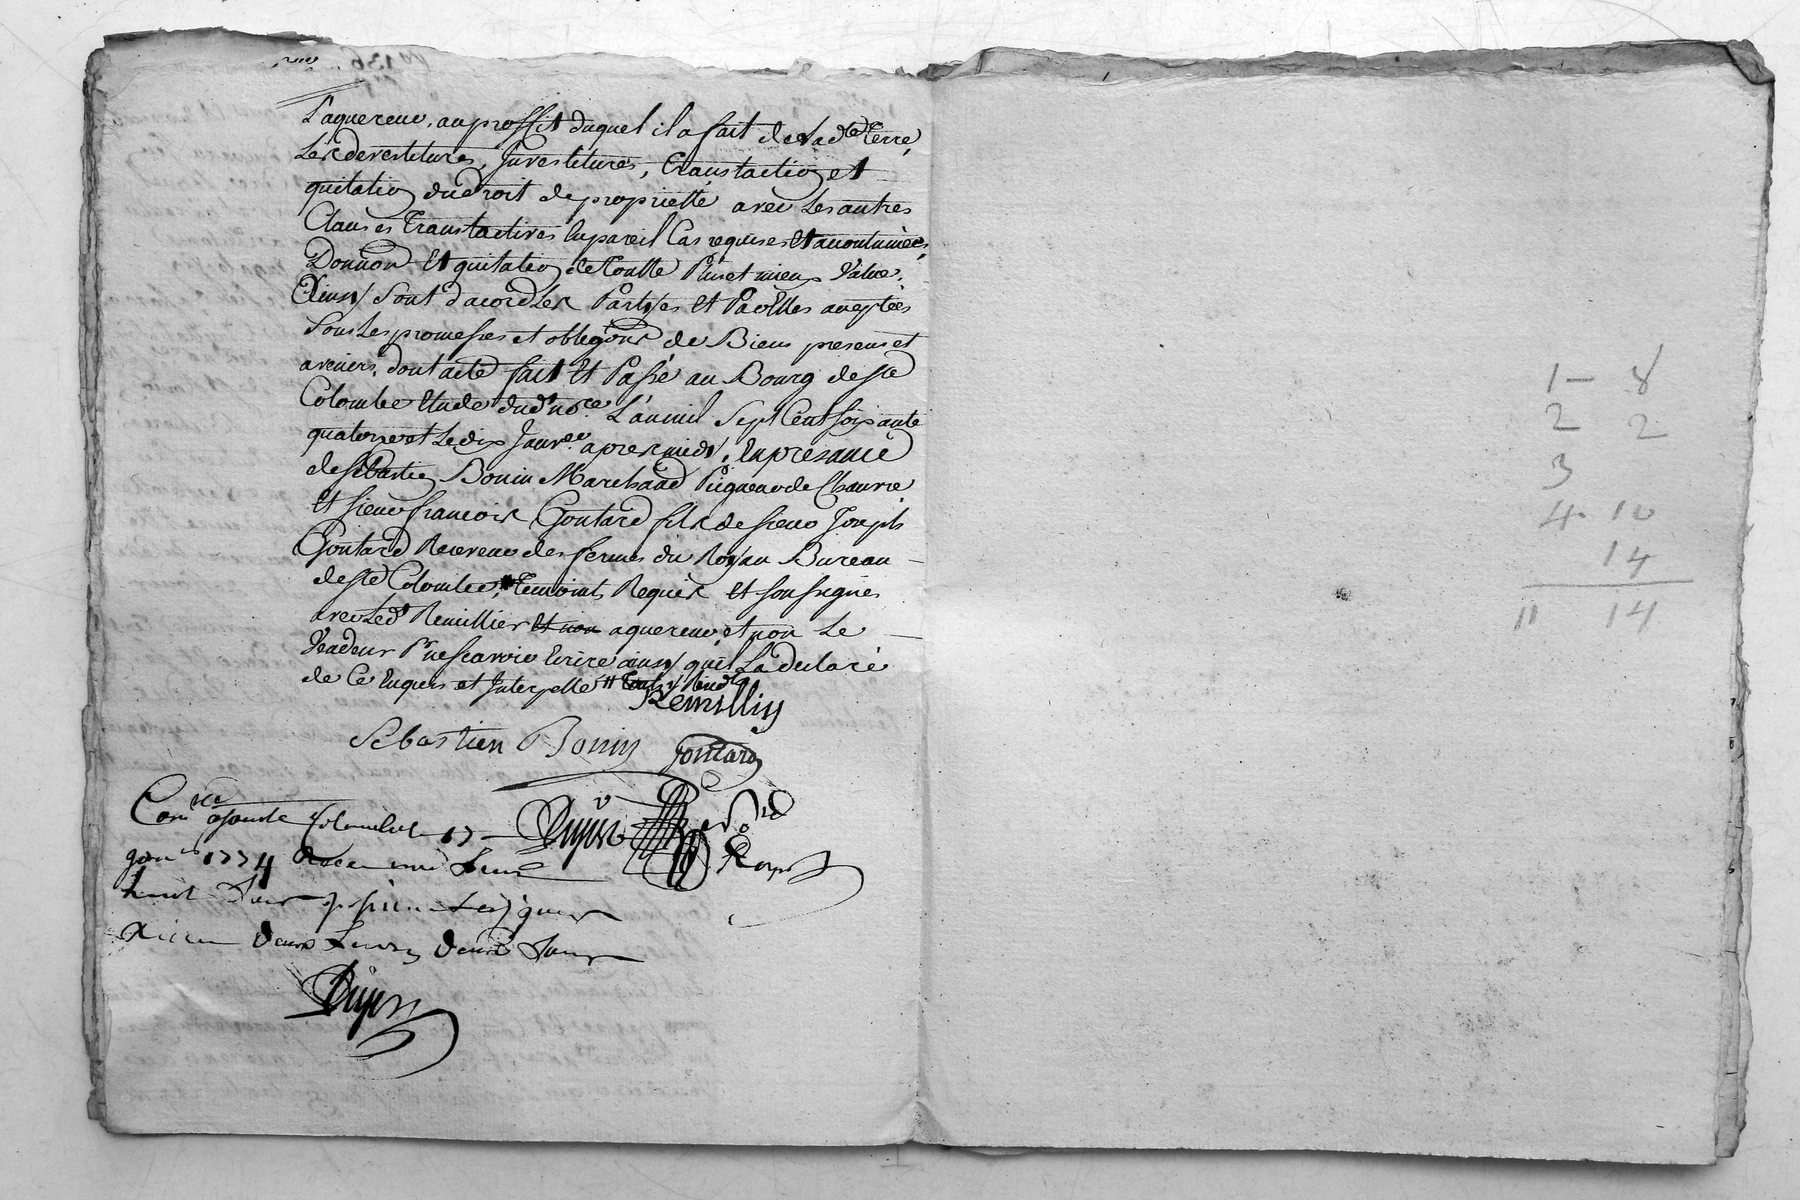 L'aquereur, au proffit duquel il a fait de lad.te terre
les devestitures, Investitures, translation et
quitation du droit de proprietté avec les autres
Clauses translatives En pareil Cas requises Et acoutumées,
Donnon Et quitation de toutte Plus et mieux Value.
Ainsy Sont d'acord les Partyes et Paoltes aceptées
Sous les promesses et obligõns de Biens presens et
avenirs, dont acte fait Et Passé au Bourg de Ste
Colombe Etude dud. no.re L'an mil Sept Cent soixante
quatorze et Le dix Janv.er apres midy, En presance
de sebastien Bonin Marchand Peigneur de Chanvre
Et sieur francois Gontard fils de sieur Joseph
Gontard Receveur des fermes du Roy au Bureau
de Ste Colombe, Temoins Requis et soussignés
avec Led. Remillier et non aquereur, et non Le
Vendeur Pr ne scavoir Ecrire ainsy qu'il La declaré
de Ce Enquis et Interpellé
Remillier
Sebastien Bonin gontard
Con.lé a sainte Colombe Le 17
janv.er 1774 Receu une livre
huit Sols
Receu deux Livres deux Sols
1 - 8
2 2
3
4 - 10
14
11 14